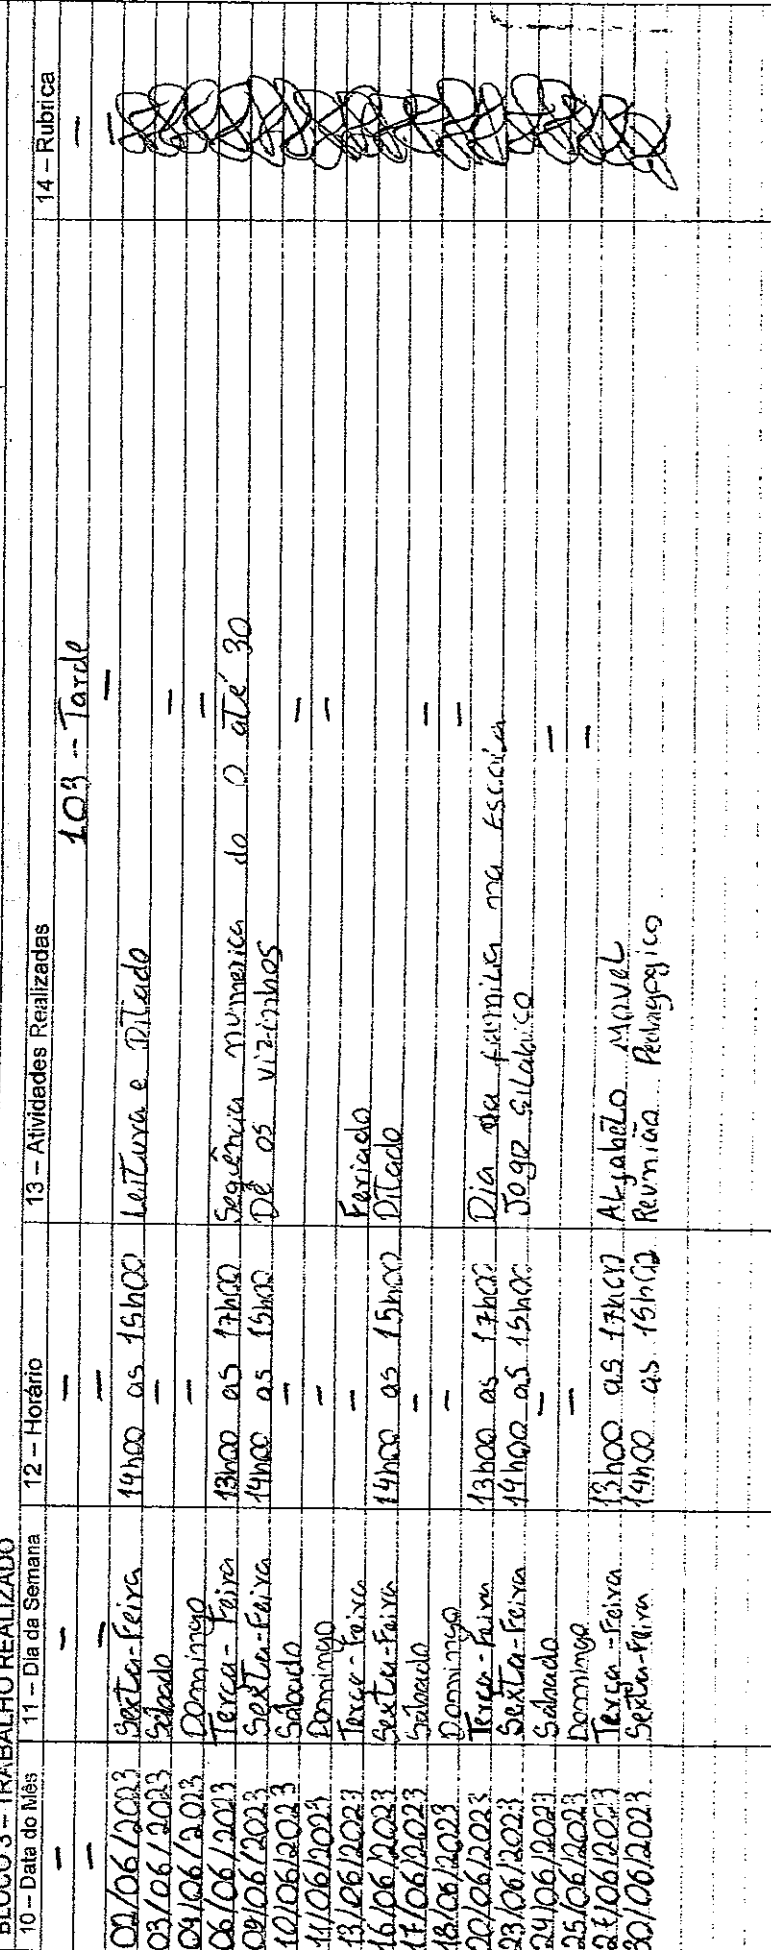 BLOCO 3 – TRABALHO REALIZADO
10 – Data do Mês 11 – Dia da Semana 12 – Horário 13 – Atividades Realizadas 14 – Rubrica
– – – 103 - Tarde –
– – – – –
02/06/2023 Sexta-Feira 14h00 as 15h00 Leitura e Ditado
03/06/2023 Sábado – –
04/06/2023 Domingo – –
06/06/2023 Terça-Feira 13h00 as 17h00 Seqüência numerica do 0 até 30
09/06/2023 Sexta-Feira 14h00 as 15h00 Dê os vizinhos
10/06/2023 Sabado – –
11/06/2023 Domingo – –
13/06/2023 Terça-Feira – Feriado
16/06/2023 Sexta-Feira 14h00 as 15h00 Ditado
17/06/2023 Sabado – –
18/06/2023 Domingo – –
20/06/2023 Terça-Feira 13h00 as 17h00 Dia da família na Escola
23/06/2023 Sexta-Feira 14h00 as 15h00 Jogo silabico
24/06/2023 Sabado – –
25/06/2023 Domingo – –
27/06/2023 Terça-Feira 13h00 as 17h00 Alfabeto Movel
30/06/2023 Sexta-Feira 14h00 as 15h00 Reunião Pedagogico